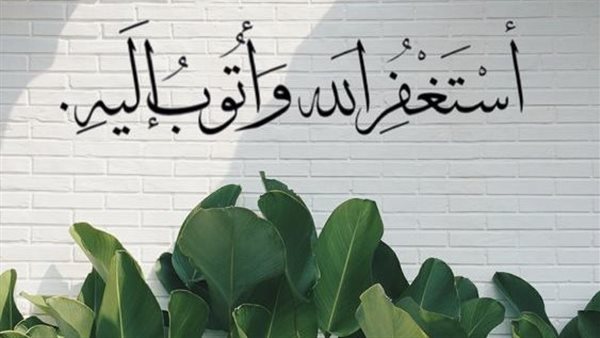 أَسْتَغْفِرُ الله وَأَتُوبُ إِلَيهِ.